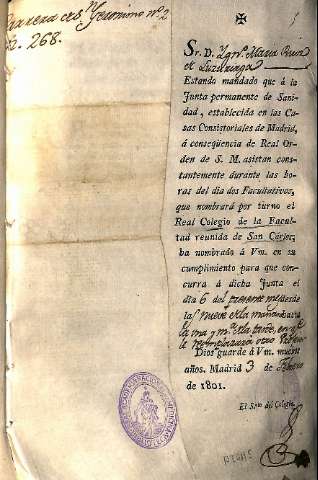 Carrera de Sn. Geronimo nº 2
268.
Sr. D. Ignº. Maria Ruiz
de Luzuriaga
Estando mandado que á la
Junta permanente de Sani-
dad, establecida en las Ca-
sas Consistoriales de Madrid,
á conseqüencia de Real Or-
den de S. M. asistan cons-
tantemente durante las ho-
ras del dia dos Facultativos,
que nombrará por turno el
Real Colegio de la Facul-
tad reunida de San Cárlos;
ha nombrado á Vm. en su
cumplimiento para que con-
curra á dicha Junta el
dia 6 del presente mes desde
las nueve de la mañana hasta
la una y mª. de la tarde, en qe.
le remplazará otro
Dios guarde á Vm. muchos
años. Madrid 3 de Febrero
de 1801.
El Srio del Colegio